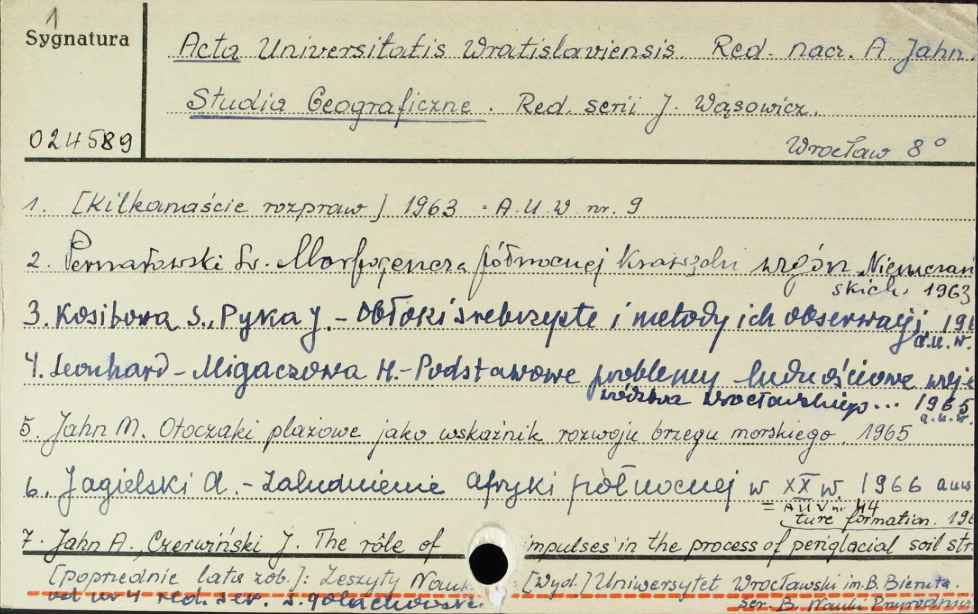 1
Sygnatura
Acta Universitatis Wratislaviensis. Red. nacz. A. Jahn.
Studia Geograficzne. Red. serii J. Wąsowicz.
024589
Wrocław 8°
1. [Kilkanaście rozpraw] 1963 = A.U.W. nr. 9
2. Pernarowski L. Morfogeneza północnej krawędzi wzgórz Niemczań
skich. 1963
3. Kosibowa S., Pyka J. - Obłoki srebrzyste i metody ich obserwacji. 196
a.u.w.
4. Leonhard - Migaczowa H. - Podstawowe problemy ludnościowe woje
wództwa wrocławskiego... 1965
a.u.w.
5. Jahn M. Otoczaki plażowe jako wskaźnik rozwoju brzegu morskiego. 1965
6. Jagielski A. - Zaludnienie Afryki północnej w XX w. 1966 auw
= AUW nr 44
ture formation. 19
7. Jahn A., Czerwiński J. The rôle of impulses in the process of periglacial soil str
[Poprzednie lata zob.]: Zeszyty Nauk. [Wyd.] Uniwersytet Wrocławski im. B. Bieruta.
od nr 4 red. ser. Ser. B. Nauki Przyrodnicze